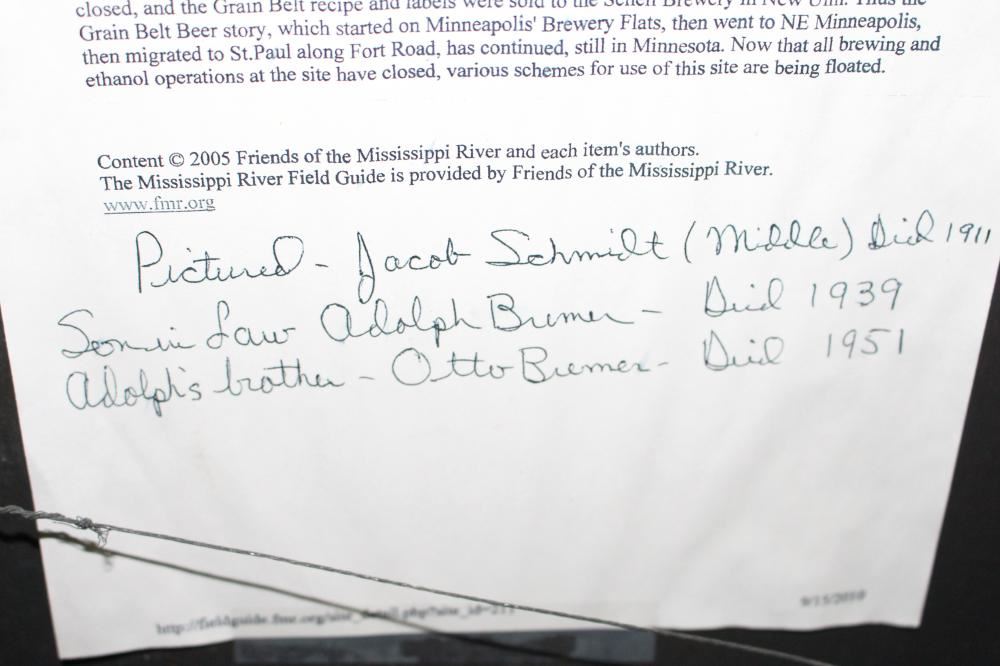 closed, and the Grain Belt recipe and labels were sold to the Schell Brewery in New Ulm. Thus the
Grain Belt Beer story, which started on Minneapolis' Brewery Flats, then went to NE Minneapolis,
then migrated to St.Paul along Fort Road, has continued, still in Minnesota. Now that all brewing and
ethanol operations at the site have closed, various schemes for use of this site are being floated.
Content © 2005 Friends of the Mississippi River and each item's authors.
The Mississippi River Field Guide is provided by Friends of the Mississippi River.
www.fmr.org
Pictured - Jacob Schmidt (Middle) Died 1911
Son in Law Adolph Bremer - Died 1939
Adolph's brother - Otto Bremer - Died 1951
http://fieldguide.fmr.org/site_detail.php?site_id=211
9/15/2010